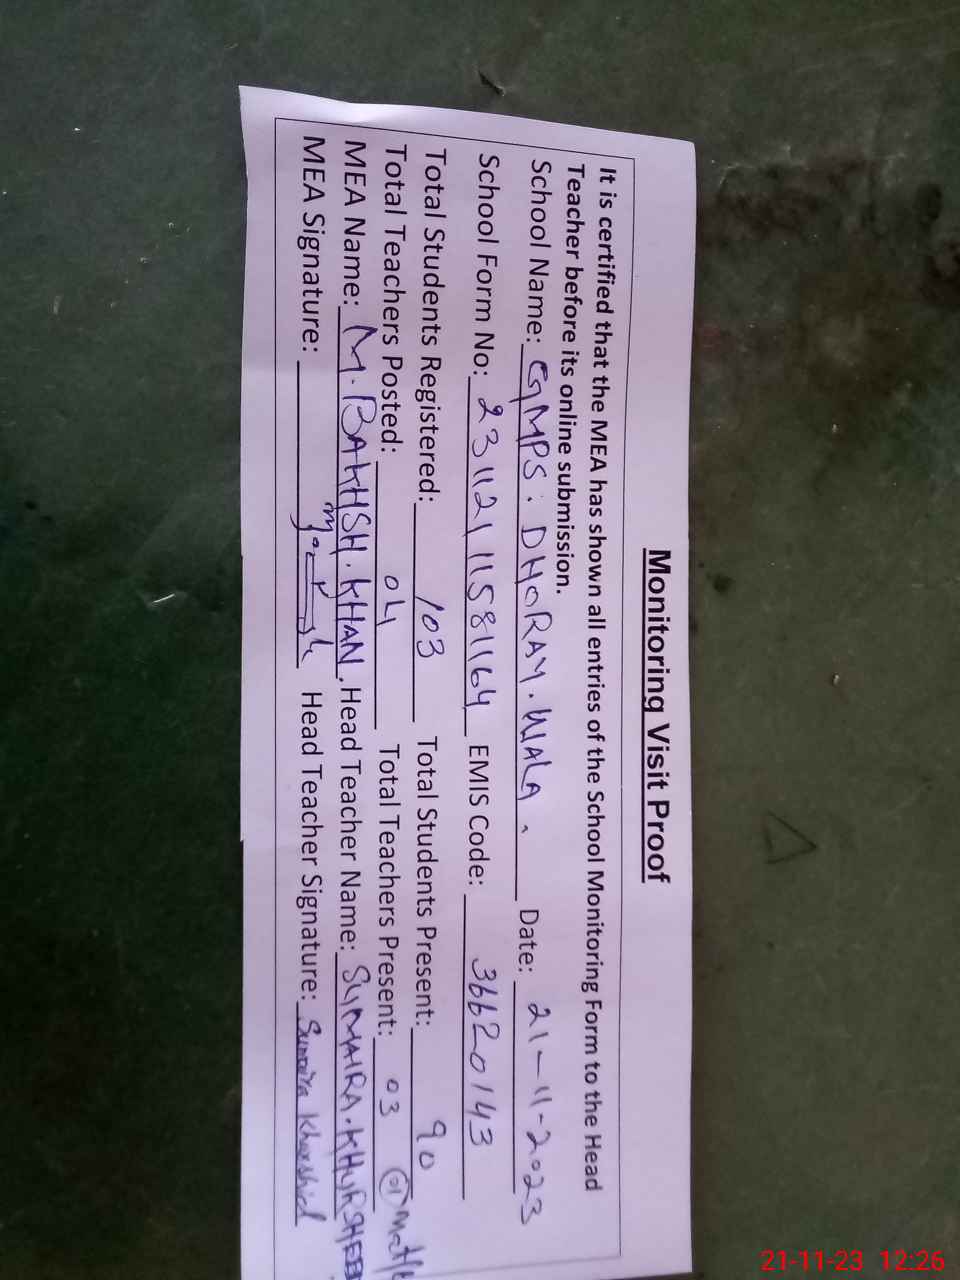 Monitoring Visit Proof
It is certified that the MEA has shown all entries of the School Monitoring Form to the Head
Teacher before its online submission.
School Name: GMPS. DHORAY. WALA. Date: 21-11-2023
School Form No: 23112111581164 EMIS Code: 36620143
Total Students Registered: 103 Total Students Present: 90
Total Teachers Posted: 04 Total Teachers Present: 03 01 Mat/L
MEA Name: M. BAKHSH. KHAN. Head Teacher Name: SUMAIRA. KHURSHEED
MEA Signature: Head Teacher Signature: Sumaira Khurshid
21-11-23 12:26